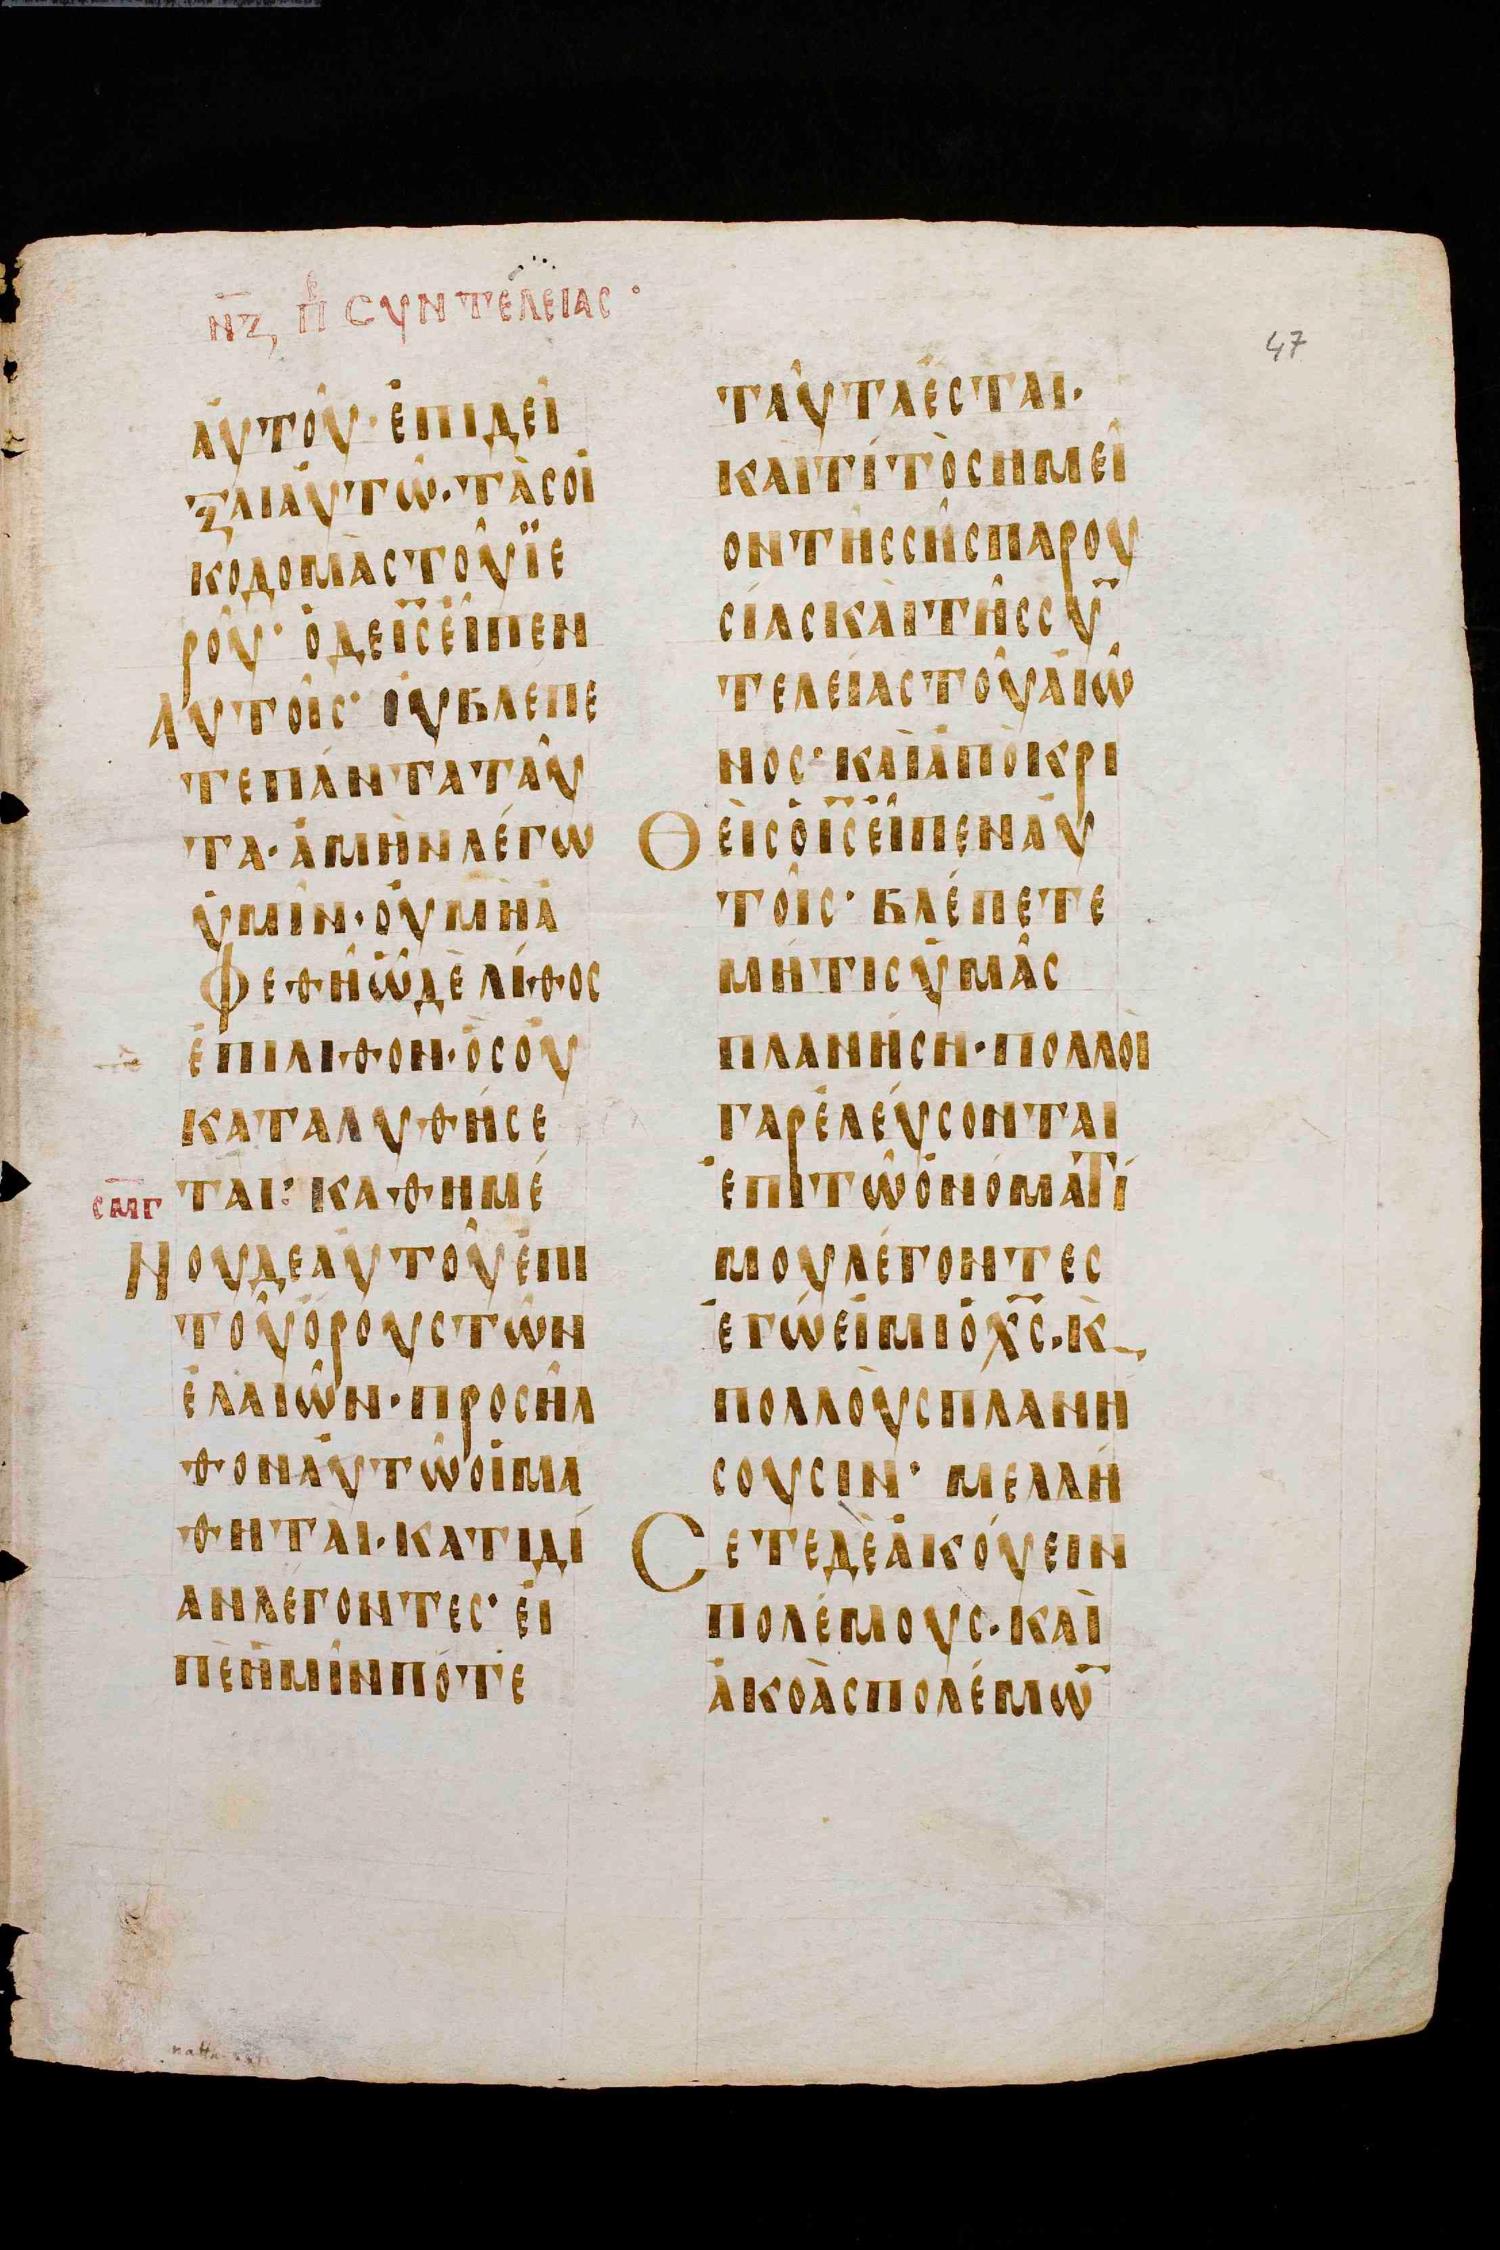 Ν̅Ζ̅ Π̅ε̅ ΣΥΝΤΕΛΕΙΑΣ·
47
ἀυτοῦ· ἐπιδεῖ
ξαι ἀυτῶ· τὰς οἰ
κοδομὰς τοῦ ϊε
ροῦ· ὁ δὲ ι̅ς̅ εἶπεν
Αυτοῖς· ὀυ βλέπε
τε πάντα ταῦ
τα· ἀμὴν λέγω
ὑμῖν· ὀυ μὴ ἀ
Φεθῆ ὧδε λίθος
ἐπι λίθον· ὃς ὀυ
καταλυθήσε
ται: καθημέ
Νου δε ἀυτοῦ ἐπι
τοῦ ὄρους τῶν
ἐλαιῶν· προσῆλ
θον ἀυτῶ οἱ μα
θηταὶ· κατ ιδί
αν λέγοντες· εἰ
πὲ ἡμῖν πότε
σ̅μ̅γ̅
ταῦτα ἔσται·
καὶ τί τὸ σημεῖ
ον τῆς σῆς παρου
σίας καὶ τῆς συ̅
τελείας τοῦ ἀιῶ
νος· καὶ ἀποκρι
Θεὶς ὁ ι̅ς̅ εἶπεν ἀυ
τοῖς· βλέπετε
μή τις ὑμᾶς
πλανήση· πολλοὶ
γαρ ἐλεύσονται
ἐπι τῶ ὀνόματί
μου λέγοντες
ἐγώ εἰμι ὁ χ̅ς̅· κ̀
πολλοὺς πλανη
σουσιν· μελλή
Σετε δὲ ἀκόυειν
πολέμους· καὶ
ἀκοὰς πολέμω̅